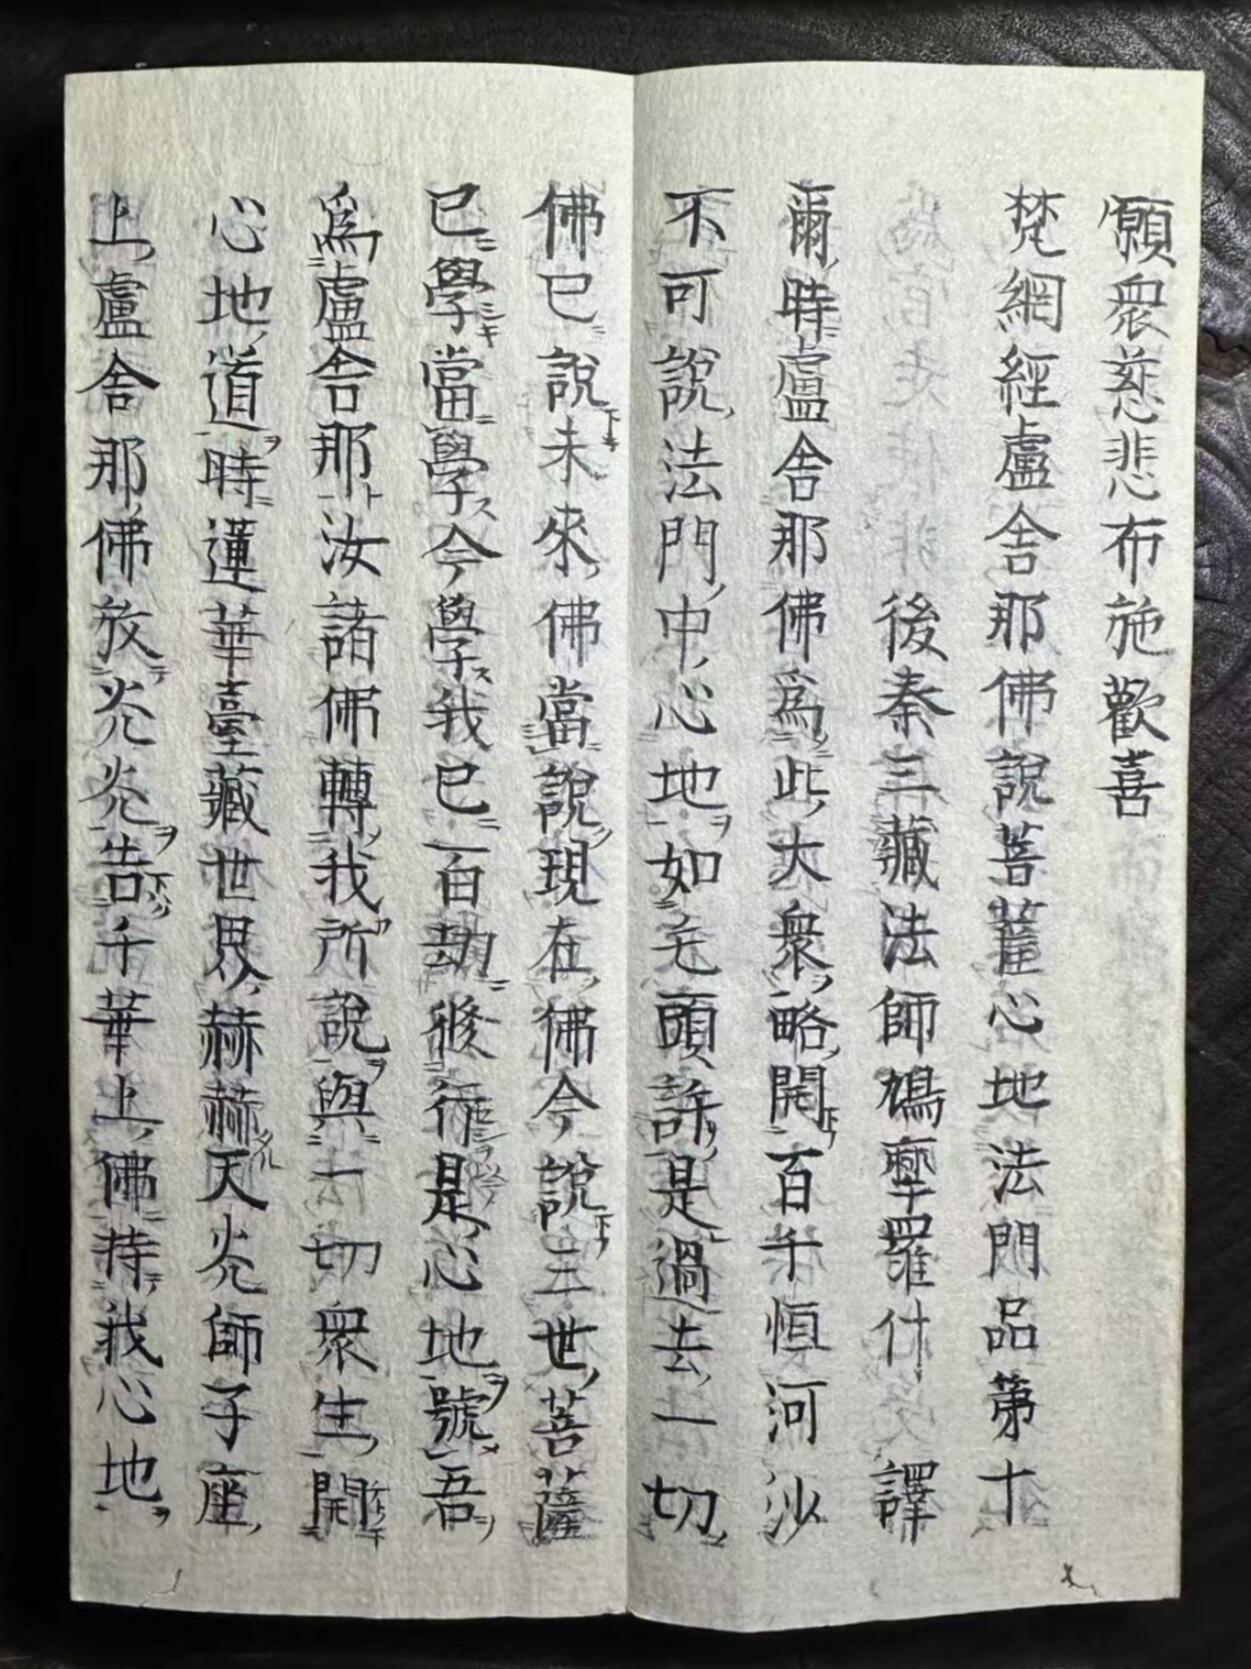 願衆慈悲布施歡喜
梵網經盧舍那佛說菩薩心地法門品第十
後秦三藏法師鳩摩羅什譯
爾時盧舍那佛爲此大衆略開百千恒河沙
不可說法門中心地如毛頭許是過去一切
佛已說未來佛當說現在佛今說三世菩薩
已學當學今學我已百劫修行是心地號吾
爲盧舍那汝諸佛轉我所說與一切衆生開
心地道時蓮華臺藏世界赫赫天光師子座
上盧舍那佛放光光告千華上佛持我心地